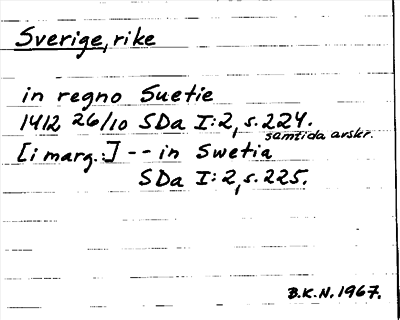 Sverige, rike
in regno Suetie
1412 26/10 SDa I:2, s. 224.
samtida avskr.
[i marg.:] -- in Swetia
SDa I:2, s. 225.
B.K.N. 1967.